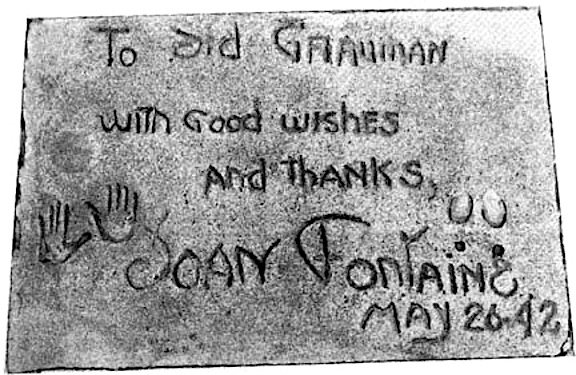 To Sid Grauman
with Good wishes
And Thanks,
Joan Fontaine
MAY 26-42